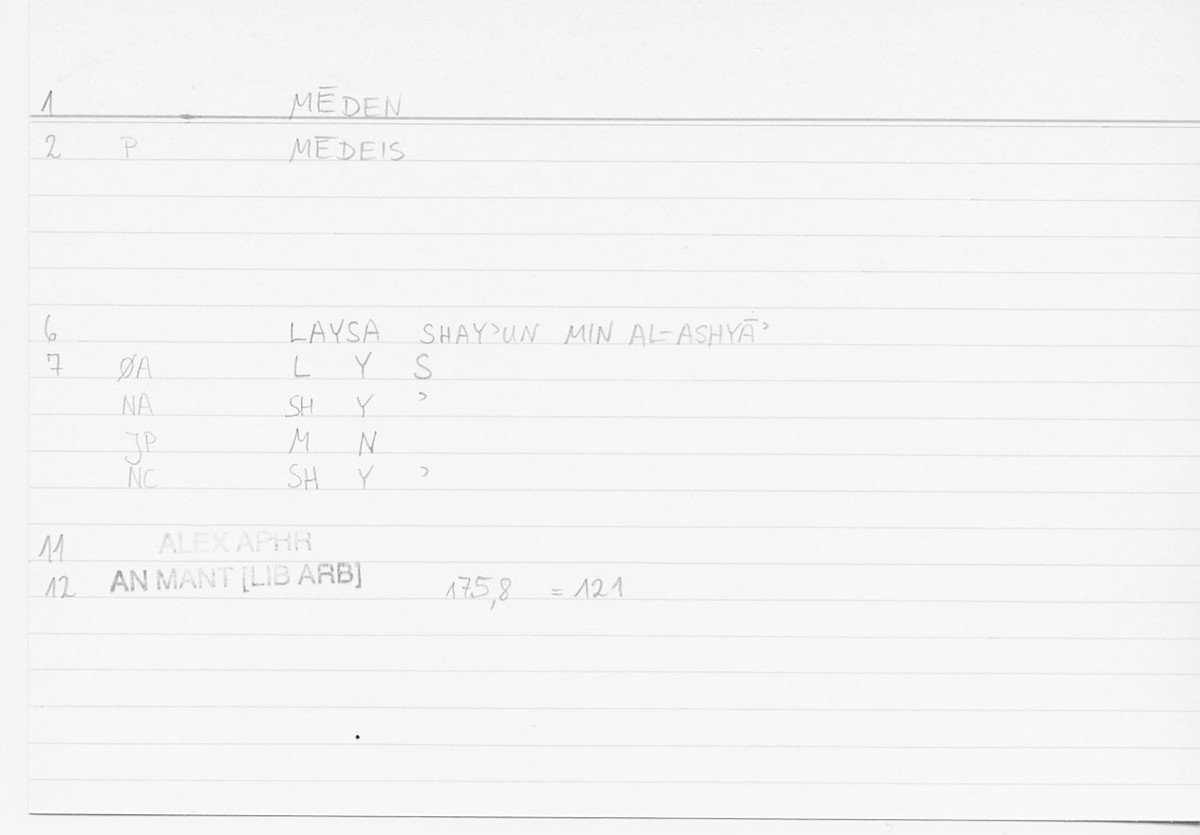 1 MĒDEN
2 P MĒDEIS
6 LAYSA SHAYʾUN MIN AL-ASHYĀʾ
7 ØA L Y S
NA SH Y ʾ
JP M N
NC SH Y ʾ
11 ALEX APHR
12 AN MANT [LIB ARB] 175,8 = 121